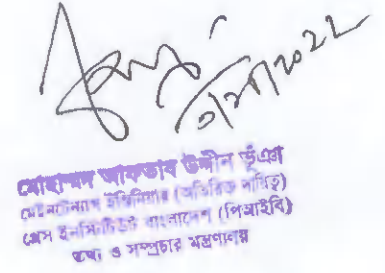 মোহাম্মদ আফতাব উদ্দীন ভূঁঞা
মেইনটেন্যান্স ইঞ্জিনিয়ার (অতিরিক্ত দায়িত্ব)
প্রেস ইনস্টিটিউট বাংলাদেশ (পিআইবি)
তথ্য ও সম্প্রচার মন্ত্রণালয়